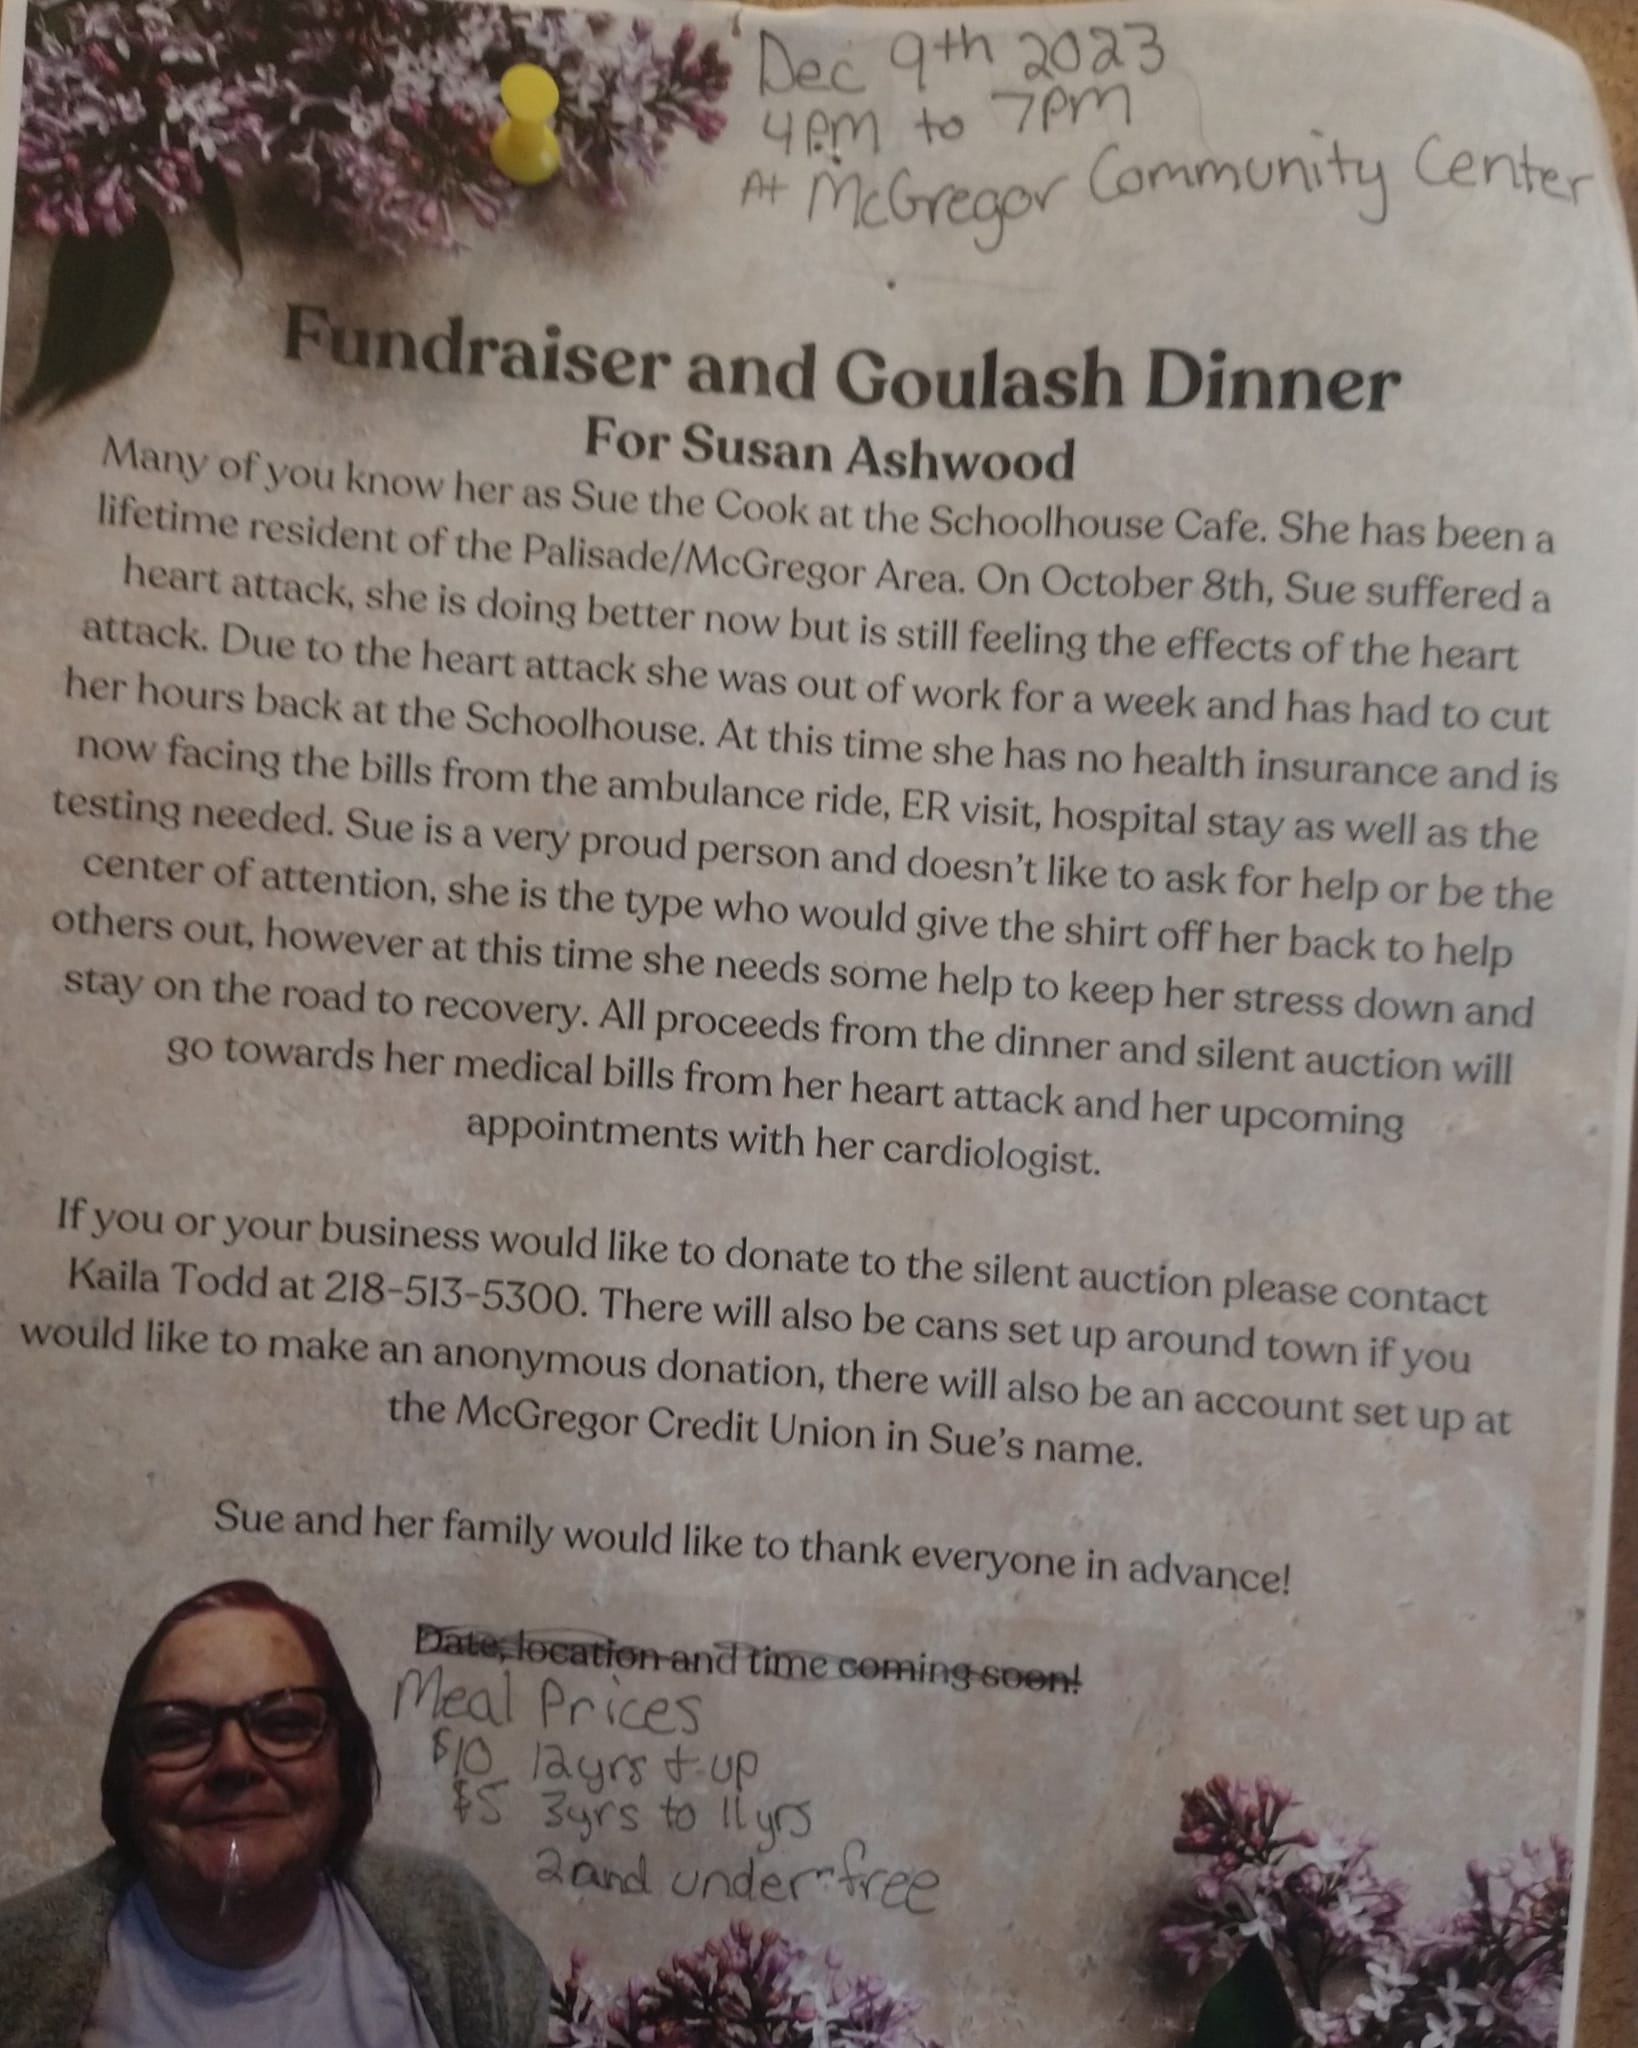 Dec 9th 2023
4PM to 7PM
At McGregor Community Center
Fundraiser and Goulash Dinner
For Susan Ashwood
Many of you know her as Sue the Cook at the Schoolhouse Cafe. She has been a
lifetime resident of the Palisade/McGregor Area. On October 8th, Sue suffered a
heart attack, she is doing better now but is still feeling the effects of the heart
attack. Due to the heart attack she was out of work for a week and has had to cut
her hours back at the Schoolhouse. At this time she has no health insurance and is
now facing the bills from the ambulance ride, ER visit, hospital stay as well as the
testing needed. Sue is a very proud person and doesn't like to ask for help or be the
center of attention, she is the type who would give the shirt off her back to help
others out, however at this time she needs some help to keep her stress down and
stay on the road to recovery. All proceeds from the dinner and silent auction will
go towards her medical bills from her heart attack and her upcoming
appointments with her cardiologist.
If you or your business would like to donate to the silent auction please contact
Kaila Todd at 218-513-5300. There will also be cans set up around town if you
would like to make an anonymous donation, there will also be an account set up at
the McGregor Credit Union in Sue's name.
Sue and her family would like to thank everyone in advance!
Date, location and time coming soon!
Meal Prices
$10 12yrs + up
$5 3yrs to 11yrs
2 and under - free